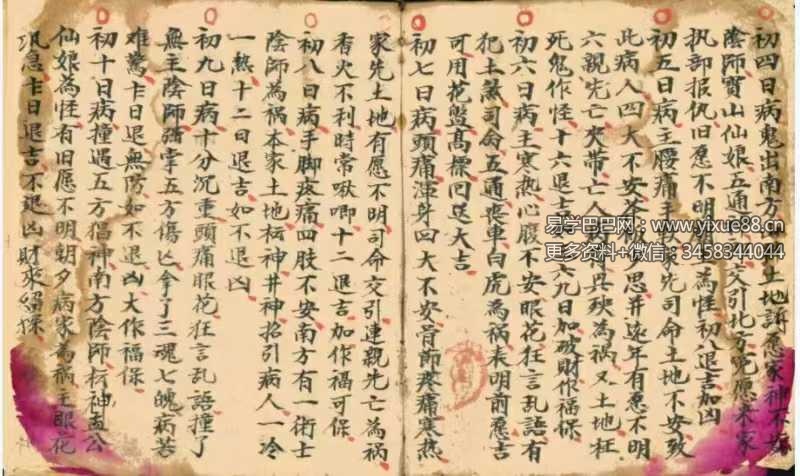 初四日病鬼出南方 土地許愿家神不安
陰師寶山仙娘五通 交引北方冤愿來家
执部报仇旧愿不明 為怪初八退吉加凶
初五日病主腰痛手 家先司命土地不安致
此病人四大不安茶 少思并遠年有愿不明
六親先亡夾帶亡人 得兵殃為禍又土地枉
死鬼作怪十六退土 四六九日加破財作福保
初六日病主寒热心腹不安眼花狂言乱語有
犯土煞司命五通喪車白虎為祸表明前愿吉
可用花盤高標回送大吉
初七日病頭痛渾身四大不安骨節疼痛寒热
家先土地有愿不明司命交引連親先亡為祸
香火不利時常啾唧十二退吉加作福可保
初八日病手脚疼痛四肢不安南方有一術士
陰師為祸本家土地坛神井神招引病人一冷
一熱十二日退吉如不退凶
初九日病十分沉重頭痛眼花狂言乱語撞了
無主陰師强拿五方傷亡拿了三魂七魄病苦
难当卡日退無防如不退凶大作福保
初十日病撞遇五方猖神南方陰師坛神
仙娘為怪有旧愿不明朝夕病家為禍主眼花
急卡日退吉不退凶財來
易学巴巴网：www.yixuc88.cn
更多资料+微信：3458344044